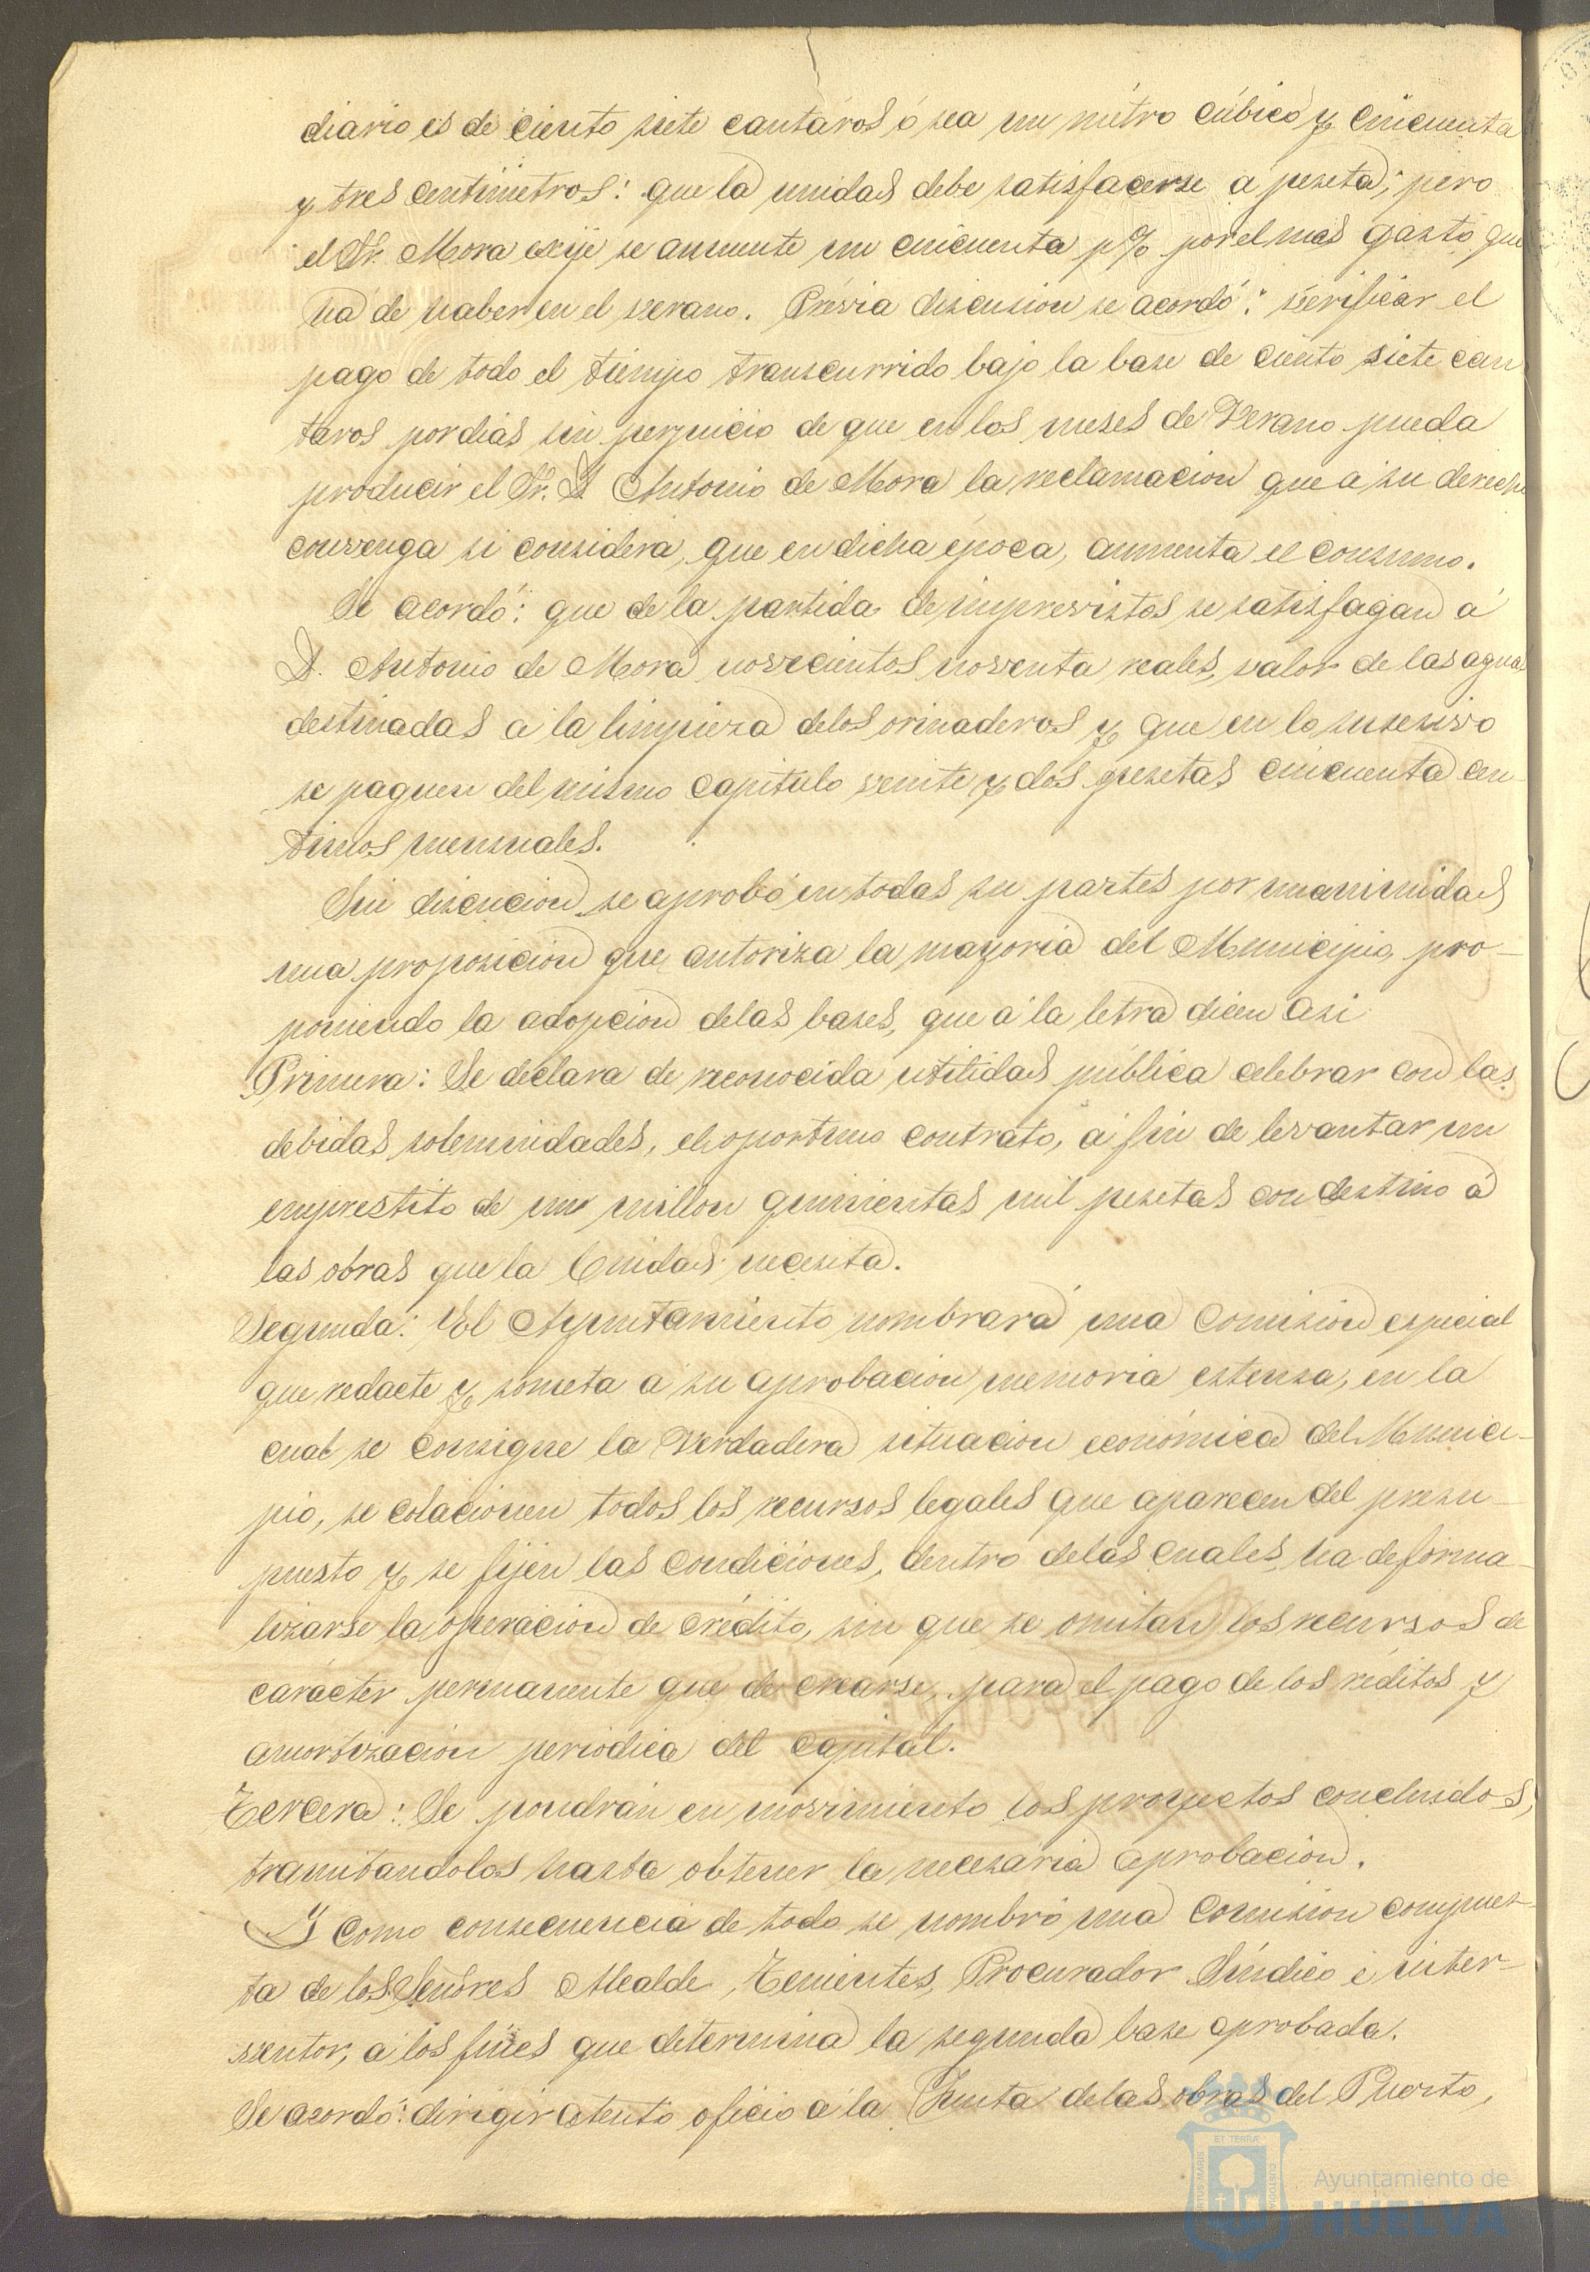 diario es de ciento siete cantáros ó sea un métro cúbico y cincuenta
y tres centimetros: que la unidad debe satisfacerse a peseta; pero
el Sr. Mora exije se aumente un cincuenta p% por el mas gasto que
ha de haber en el verano. Prévia discusion se acordó: verificar el
pago de todo el tiempo transcurrido bajo la base de ciento siete can
taros por dias sin perjuicio de que en los meses de Verano pueda
producir el Sr. D Antonio de Mora la reclamacion que a su derecho
convenga si considera, que en dicha época, aumenta el consumo.
Se acordó: que de la partida de imprevistos se satisfagan á
D. Antonio de Mora novecientos noventa reales, valor de las aguas
destinadas a la limpieza de los orinaderos y que en lo susesivo
se paguen del mismo capitulo veinte y dos pesetas cincuenta cen
timos mensuales.
Sin discucion se aprobó en todas su partes por unanimidad
una proposicion que autoriza la mayoria del Municipio, pro-
poniendo la adopcion de las bases, que á la letra dicen asi
Primera: Se declara de reconocida utilidad pública celebrar con las
debidas solemnidades, el oportuno contrato, á fin de levantar un
emprestito de un millon quinientas mil pesetas con destino á
las obras que la Ciudad necesita.
Segunda: El Ayuntamiento nombrará una Comision especial
que redacte y someta a su aprobacion memoria estensa, en la
cual se consigne la Verdadera situacion económica del Munici-
pio, se colacionen todos los recursos legales que aparecen del presu-
puesto y se fijen las condiciones, dentro de las cuales, ha de forma-
lizarse la operacion de crédito, sin que se omitan los recursos de
carácter permanente que de crearse, para el pago de los réditos y
amortizacion periodica del capital.
Tercera: Se pondrán en movimiento los proyectos concluidos,
tramitandolos hasta obtener la necesaria aprobacion.
Y como consecuencia de todo se nombró una Comision compues-
ta de los Señores Alcalde, Tenientes, Procurador Síndico é inter-
ventor, a los fines que determina la segunda base aprobada.
Se acordó: dirigir atento oficio a la Junta de las obras del Puerto,
Ayuntamiento de
HUELVA